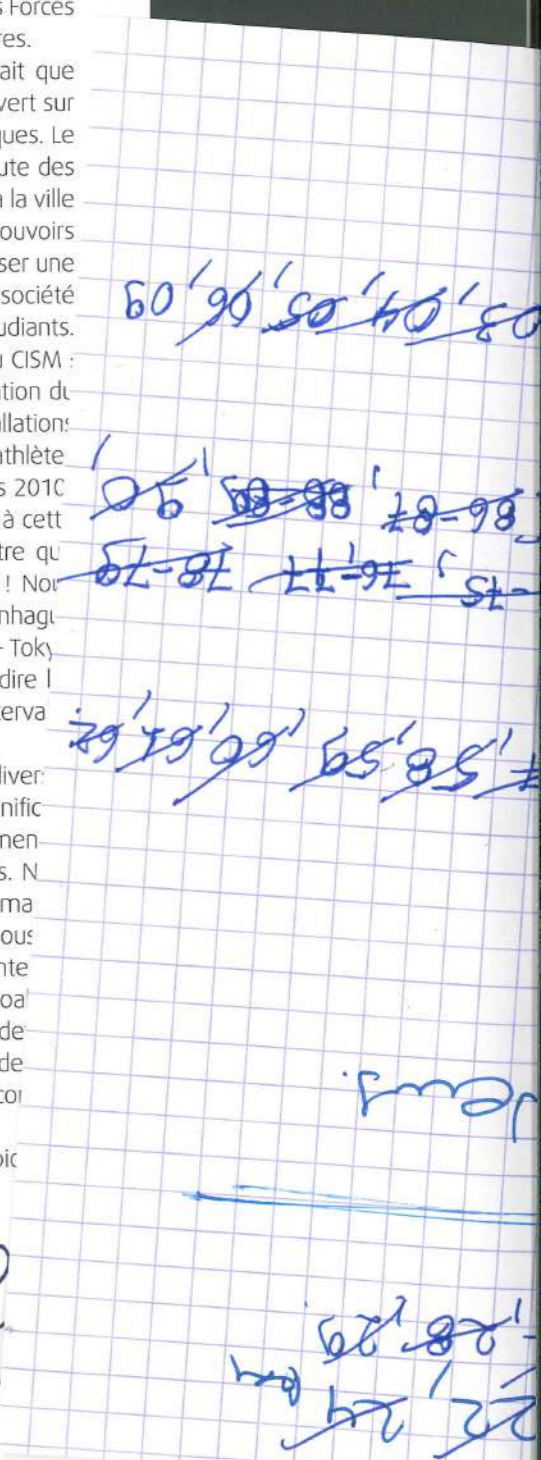 s Forces
res.
ait que
vert sur
ques. Le
ute des
à la ville
ouvoirs
ser une
société
udiants.
u CISM :
ation du
allations
athlète
s 2010
à cett
tre qu
! Nou
nhagu
- Toky
dire l
terva
liver
nific
men
s. N
ma
ous
nte
oa
de
de
coi
pic
22, 24
, 28, 29
7, 58, 59, 60, 61, 62
-75, 76-77, 78-79
86-87, 88-89, 90
03, 04, 05, 06, 09